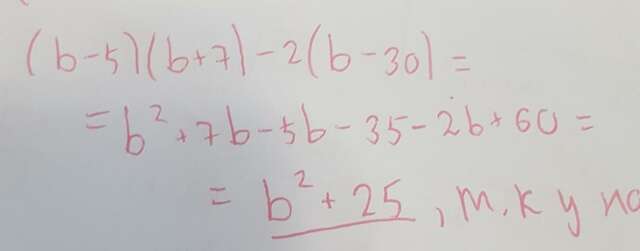 (b-5)(b+7)-2(b-30)=
=b²+7b-5b-35-2b+60=
=b²+25, m.k y no